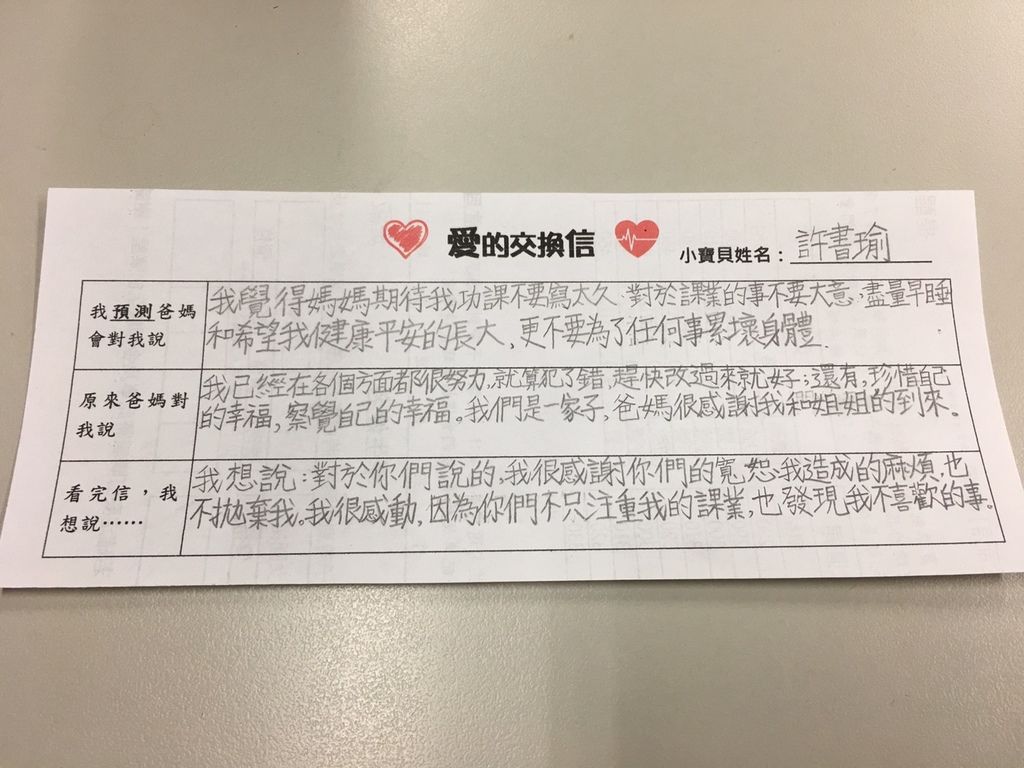 愛的交換信
小寶貝姓名：許書瑜
我預測爸媽
會對我說
我覺得媽媽期待我功課不要寫太久、對於課業的事不要大意，盡量早睡
和希望我健康平安的長大，更不要為了任何事累壞身體．
原來爸媽對
我說
我已經在各個方面都很努力，就算犯了錯，趕快改過來就好；還有，珍惜自己
的幸福，察覺自己的幸福。我們是一家子，爸媽很感謝我和姐姐的到來。
看完信，我
想說……
我想說：對於你們說的，我很感謝你們的寬恕我造成的麻煩，也
不拋棄我。我很感動，因為你們不只注重我的課業，也發現我不喜歡的事。